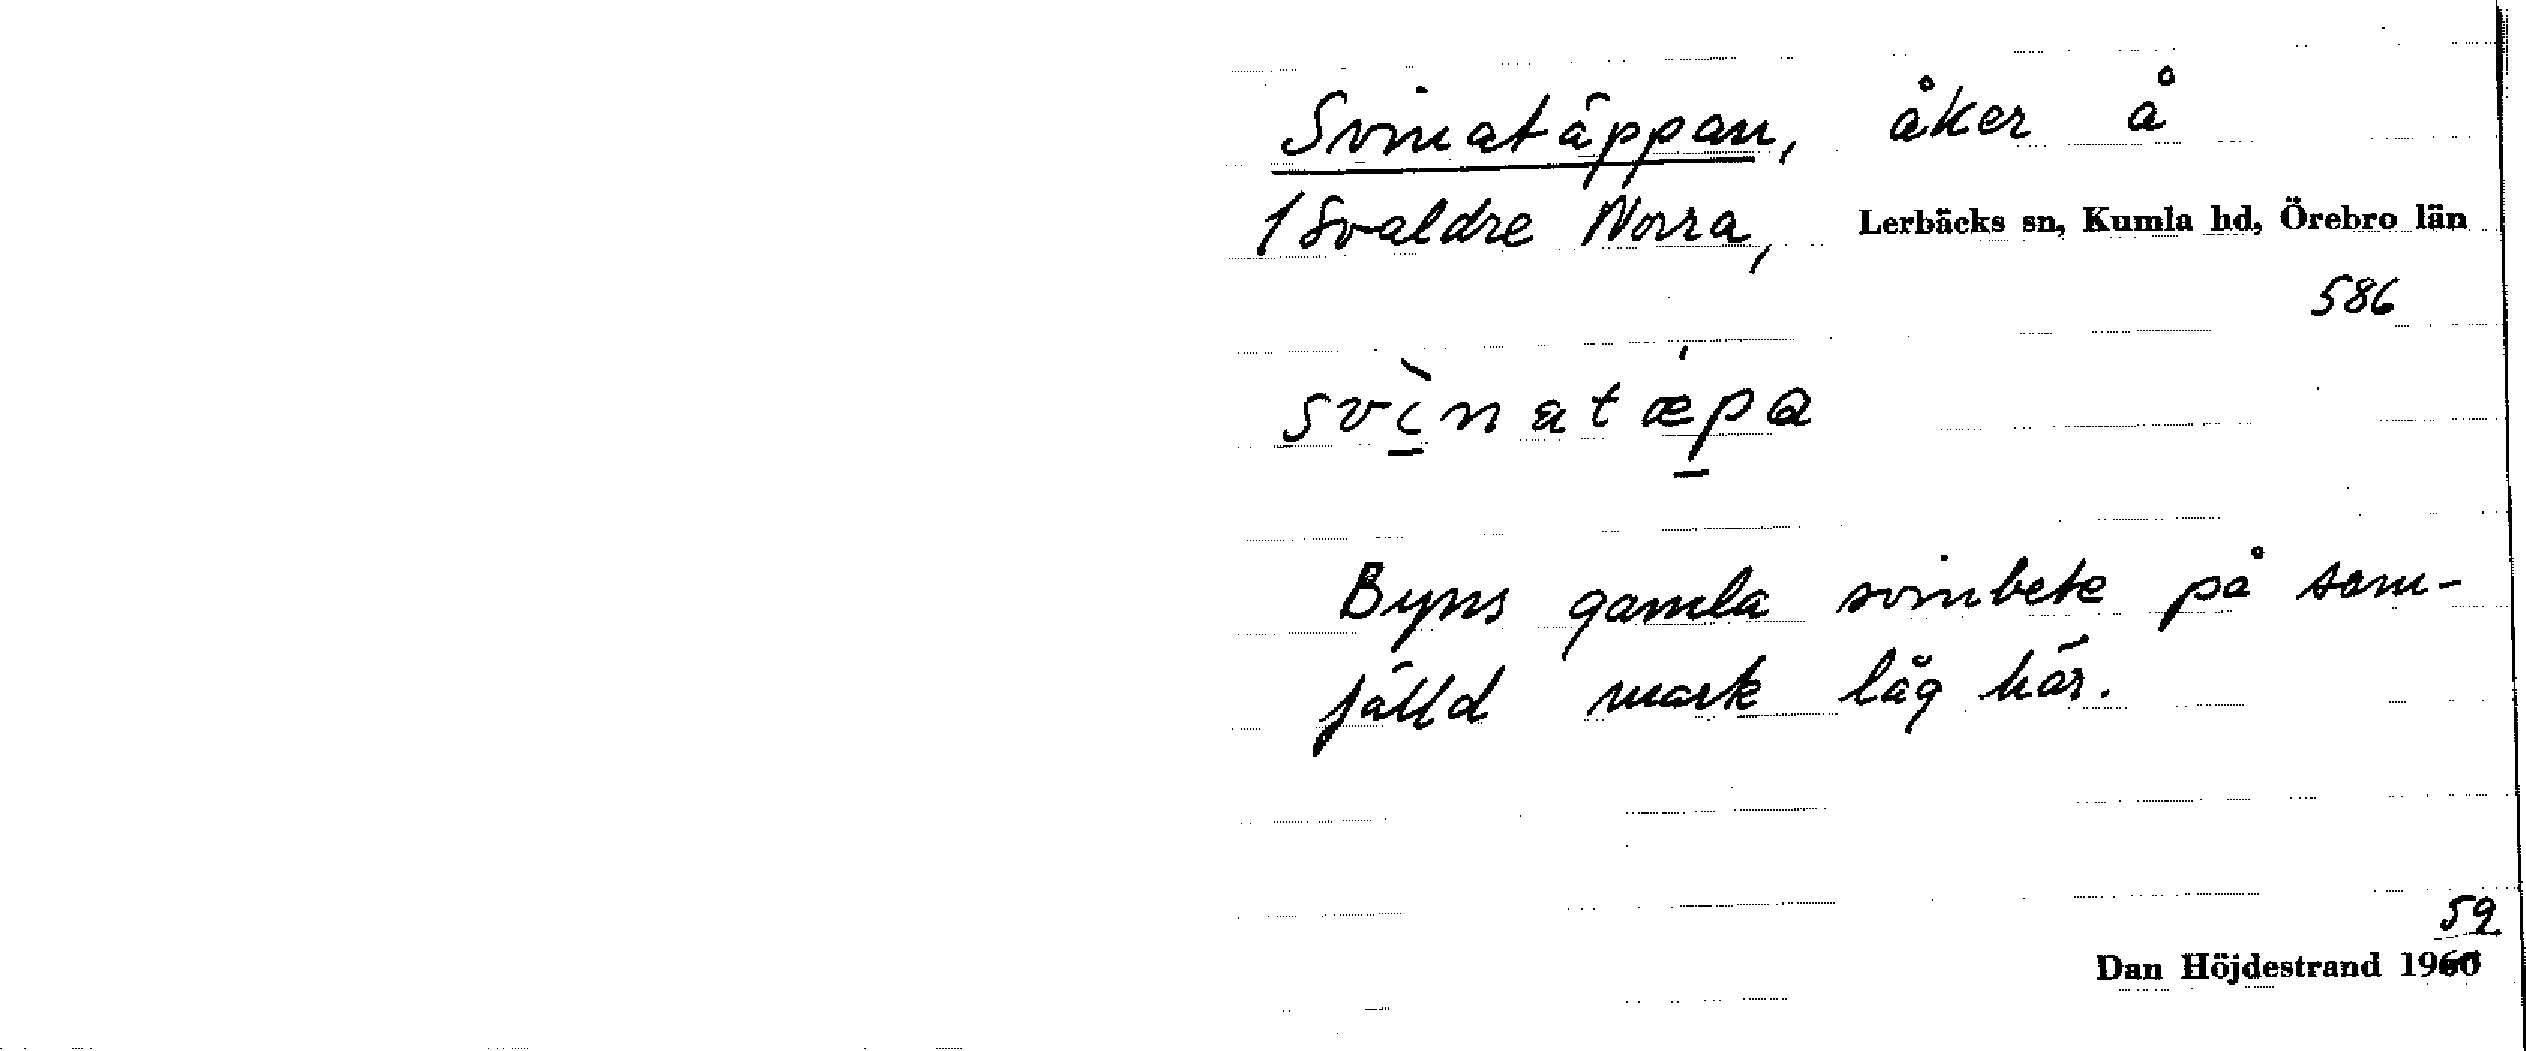 Svinatäppan, åker å
1 Svaldre Norra, Lerbäcks sn, Kumla hd, Örebro län
586
svì̱natæṕ̱a
Byns gamla svinbete på sam-
fälld mark låg här.
59
Dan Höjdestrand 1960